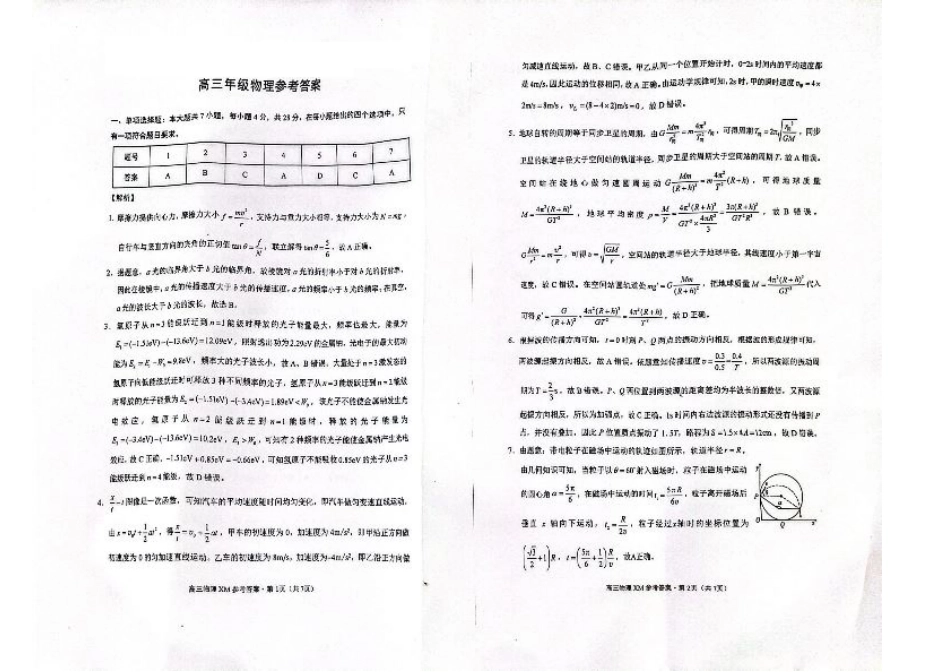 高三年级物理参考答案
一、单项选择题：本大题共7小题，每小题4分，共28分，在每小题给出的四个选项中，只
有一项符合题目要求。
题号 1 2 3 4 5 6 7
答案 A B C A D C A
【解析】
1. 摩擦力提供向心力，摩擦力大小 f=mv²/r，支持力与重力大小相等，支持力大小为 N=mg，
自行车与竖直方向的夹角的正切值 tanθ=f/N，联立解得 tanθ=5/6，故A正确。
2. 据题意，a光的临界角大于b光的临界角，故棱镜对a光的折射率小于对b光的折射率，
因此在棱镜中，a光的传播速度大于b光的传播速度，a光的频率小于b光的频率；在真空，
a光的波长大于b光的波长，故选B。
3. 氢原子从n=3能级跃迁到n=1能级时释放的光子能量最大，频率也最大，能量为
E₁=(-1.51eV)-(-13.6eV)=12.09eV，照射逸出功为2.29eV的金属钠，光电子的最大初动
能为 Eₖ=E₁-W₀=9.8eV，频率大的光子波长小，故A、B错误，大量处于n=3激发态的
氢原子向低能级跃迁时可释放3种不同频率的光子，氢原子从n=3能级跃迁到n=2能级
时释放的光子能量为 E₂=(-1.51eV)-(-3.4eV)=1.89eV<W₀，该光子不能使金属钠发生光
电效应，氢原子从n=2能级跃迁到n=1能级时，释放的光子能量为
E₃=(-3.4eV)-(-13.6eV)=10.2eV，E₃>W₀，可知有2种频率的光子能使金属钠产生光电
效应，故C正确，-1.51eV+0.85eV=-0.66eV，可知氢原子不能吸收0.85eV的光子从n=3
能级跃迁到n=4能级，故D错误。
4. x/t-t图像是一次函数，可知汽车的平均速度随时间均匀变化，即汽车做匀变速直线运动，
由 x=v₀t+1/2at²，得 x/t=v₀+1/2at，甲车的初速度为0，加速度为4m/s²，即甲沿正方向做
初速度为0的匀加速直线运动，乙车的初速度为8m/s，加速度为-4m/s²，即乙沿正方向做
高三物理XM参考答案·第1页（共7页）
匀减速直线运动，故B、C错误。甲乙从同一个位置开始计时，0-2s时间内的平均速度都
是4m/s，因此运动的位移相同，故A正确。由运动学规律可知，2s时，甲的瞬时速度 v甲=4×
2m/s=8m/s，v乙=(8-4×2)m/s=0，故D错误。
5. 地球自转的周期等于同步卫星的周期，由 GMm/r同²=m4π²/T同²r同，可得周期 T同=2π√(r同³/GM)，同步
卫星的轨道半径大于空间站的轨道半径，同步卫星的周期大于空间站的周期T，故A错误。
空间站在绕地心做匀速圆周运动 GMm/(R+h)²=m4π²/T²(R+h)，可得地球质量
M=4π²(R+h)³/GT²，地球平均密度 ρ=M/V=4π²(R+h)³/(GT²×4πR³/3)=3π(R+h)³/GT²R³，故B错误。
GMm/r²=mv²/r，可得 v=√(GM/r)，空间站的轨道半径大于地球半径，其线速度小于第一宇宙
速度，故C错误。在空间站置轨道处 mg'=GMm/(R+h)²，把地球质量 M=4π²(R+h)³/GT² 代入
可得 g'=G/(R+h)²·4π²(R+h)³/GT²=4π²(R+h)/T²，故D正确。
6. 根据波的传播方向可知，t=0时刻P、Q两点的振动方向相反，根据波的形成规律可知，
两波源起振方向相反，故A错误，依题意知传播速度 v=0.3/0.5=0.4/T，所以两波源的振动周
期为 T=2/3s，故B错误。P、Q两位置到两波源的距离差均为半波长的整数倍，又两波源
起振方向相反，所以为加强点，故C正确。1s时间内右边波源的振动形式还没有传播到P
点，并没有叠加，因此P位置质点振动了1.5T，路程为 S=1.5×4A=12cm，故D错误。
7. 由题意，带电粒子在磁场中运动的轨迹如图所示，轨道半径 r=R，
由几何知识可知，当粒子以θ=60°射入磁场时，粒子在磁场中运动
的圆心角 α=5π/6，在磁场中运动的时间 t₁=5πR/6v，粒子离开磁场后
垂直x轴向下运动，t₂=R/2v，粒子经过x轴时的坐标位置为
(√3/2+1)R，t=(5π/6+1/2)R/v，故A正确。
高三物理XM参考答案·第2页（共7页）